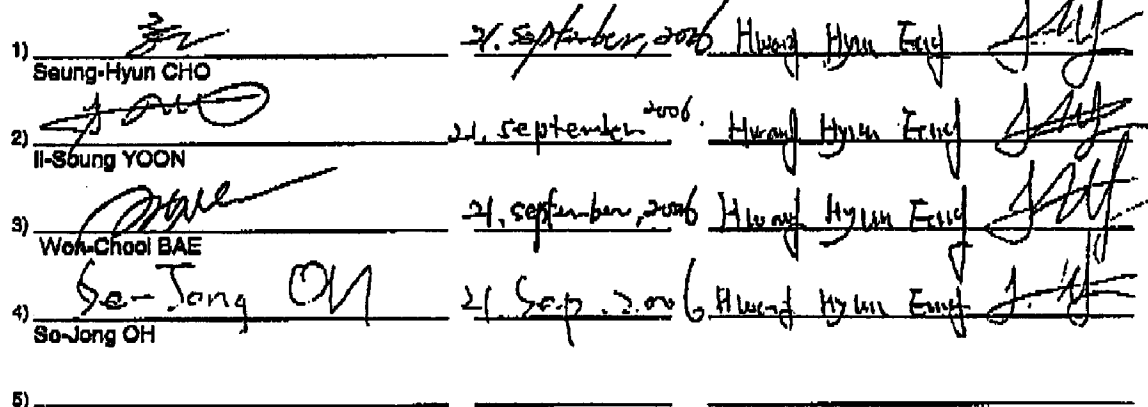 1) 21. September, 2006 Hwang Hyun Eung
Seung-Hyun CHO
2) 21. September 2006. Hwang Hyun Eung
Il-Soung YOON
3) 21. September, 2006 Hwang Hyun Eung
Won-Chool BAE
4) Se-Jong OH 21. Sep. 2006 Hwang Hyun Eung
So-Jong OH
5)